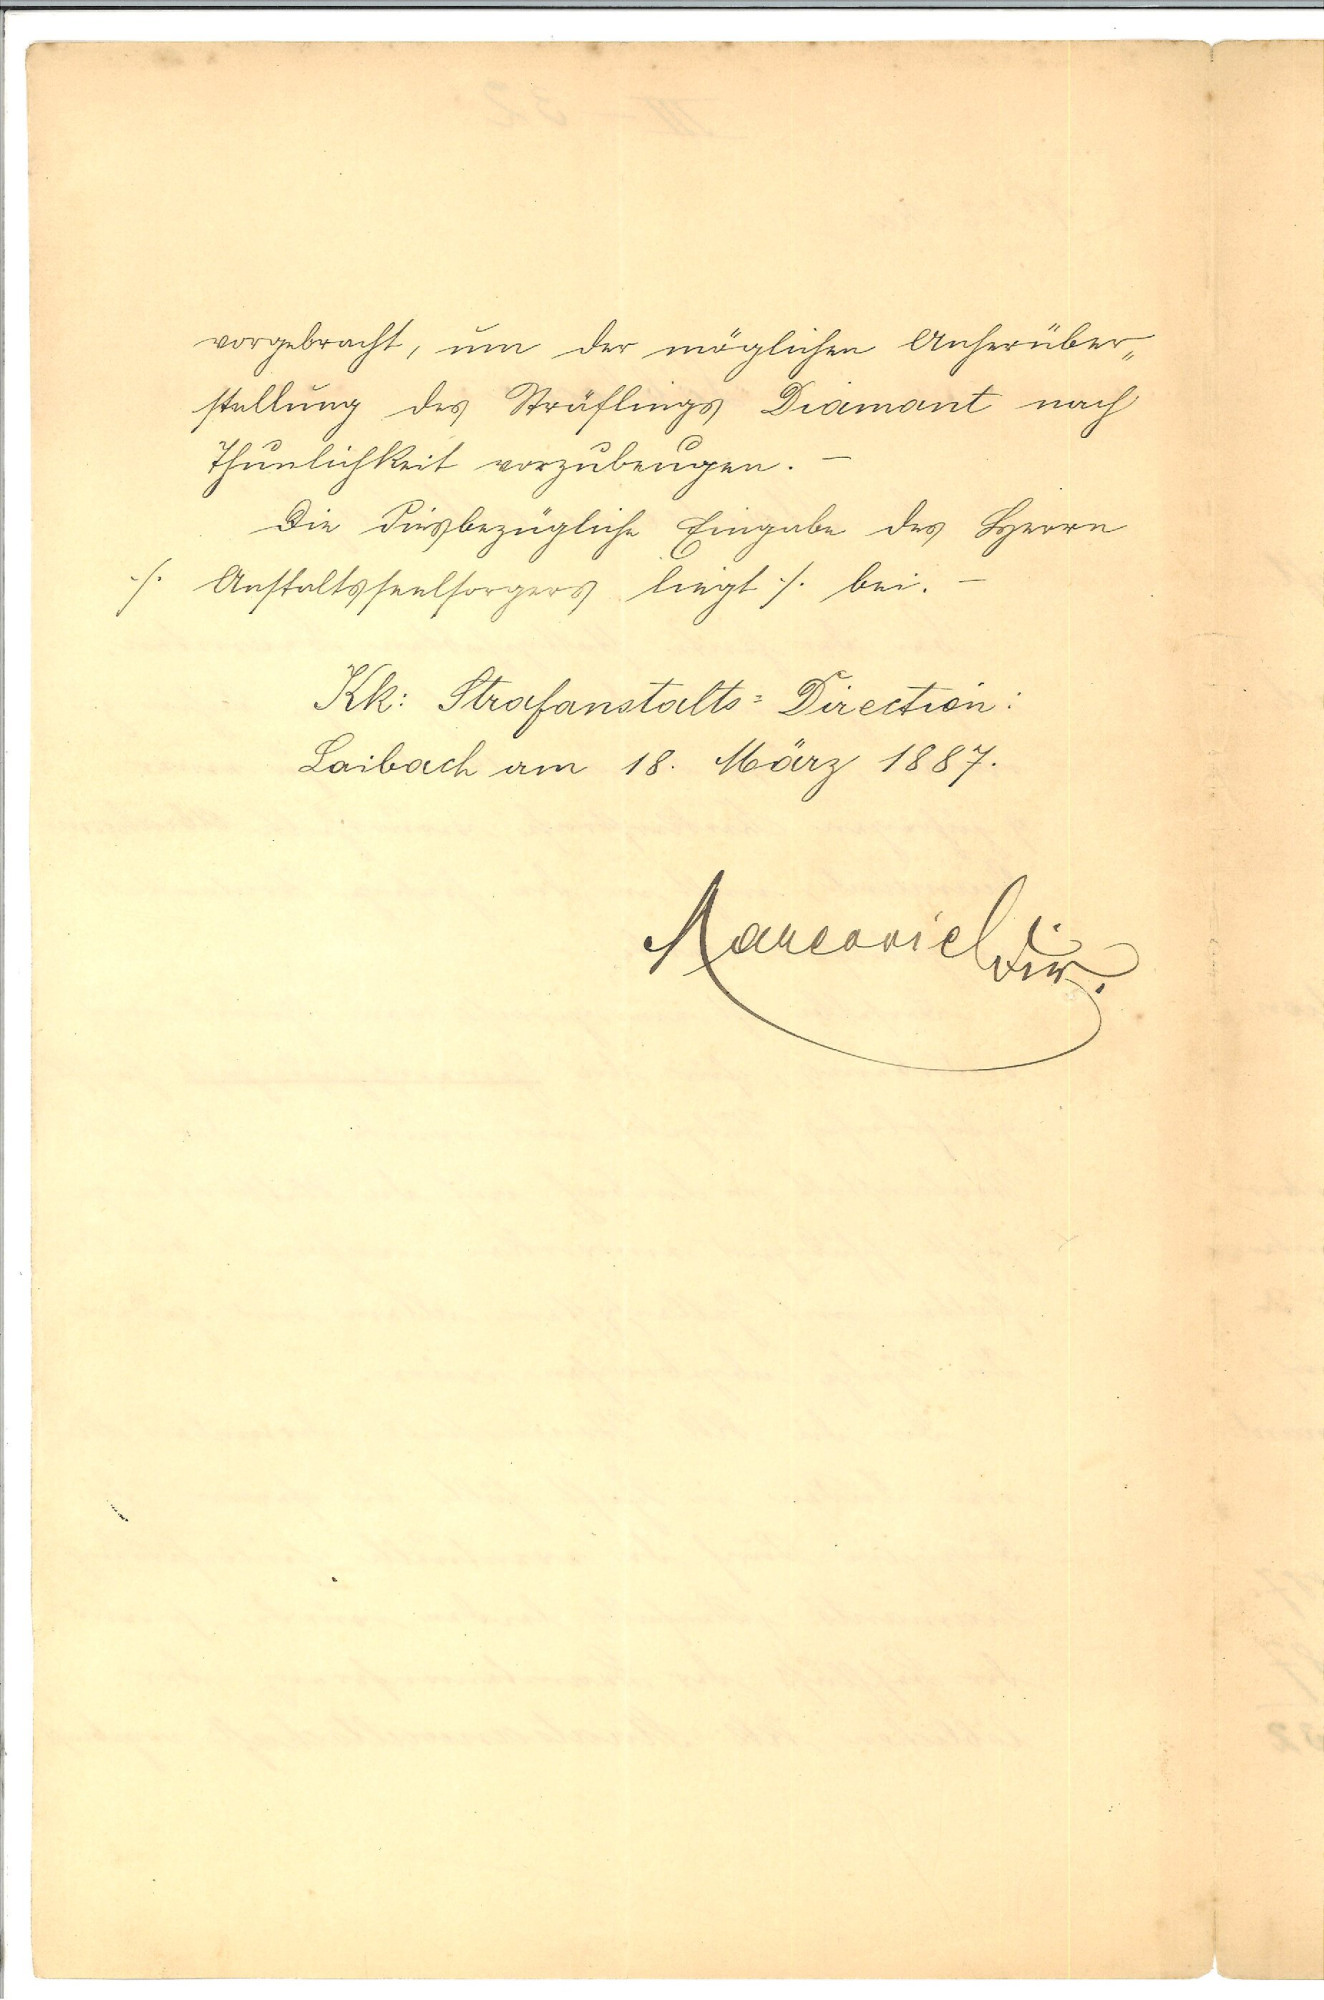 vorgebracht, um der möglichen Anherüber„
stellung des Sträflings Diamant nach
Thunlichkeit vorzubeugen. —
Die diesbezügliche Eingabe des Herrn
./. Anstaltsseelsorgers liegt ./. bei. —
Kk: Strafanstalts=Direction:
Laibach am 18. März 1887.
Marcovich
Dir.